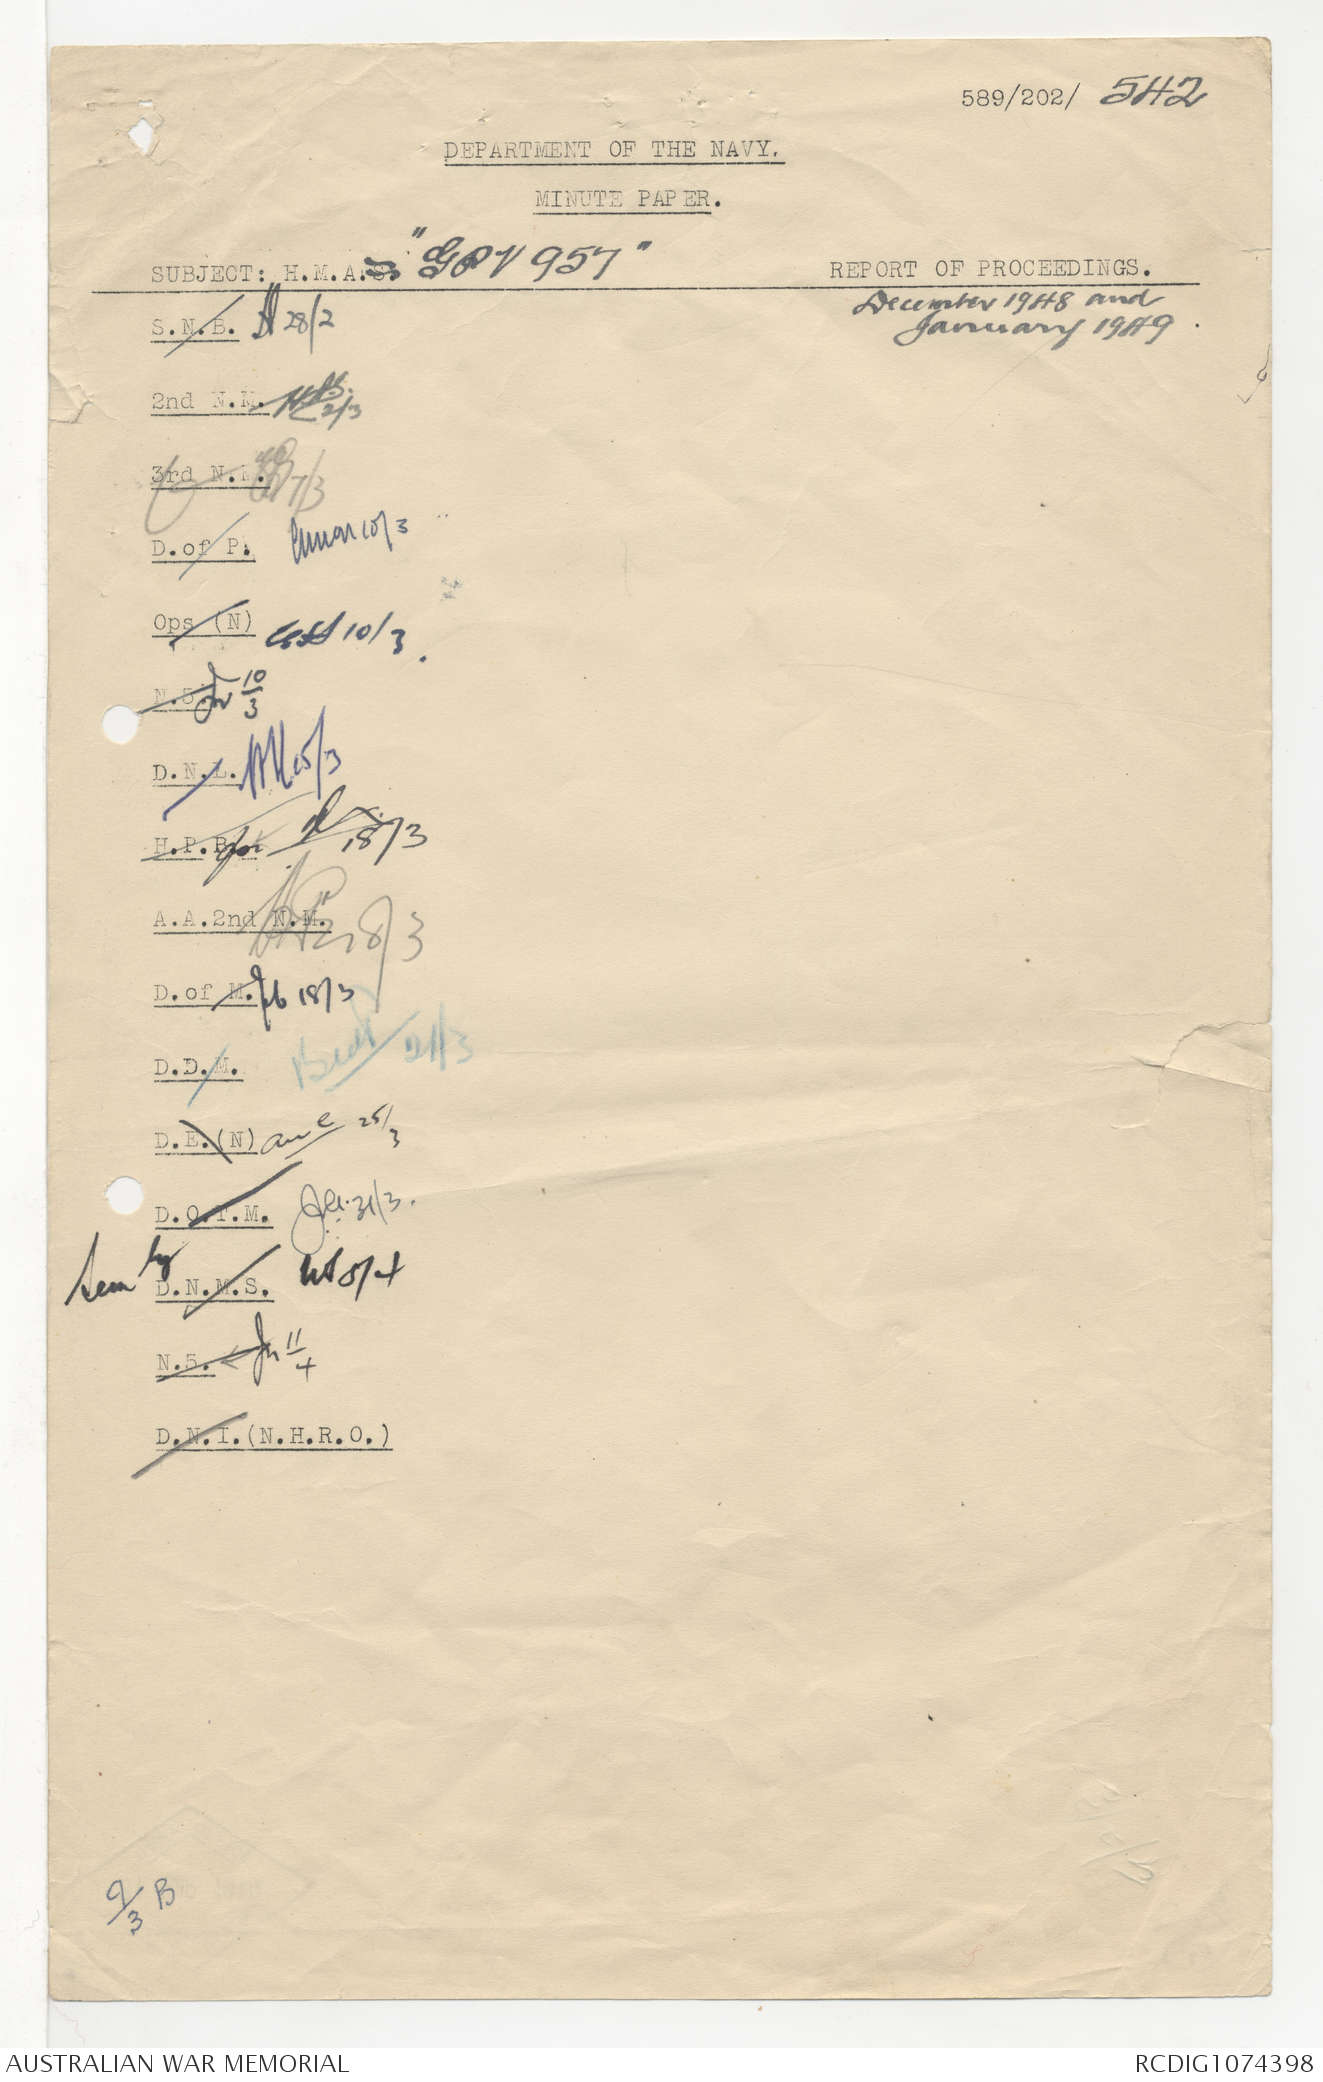 589/202/ 542
DEPARTMENT OF THE NAVY.
MINUTE PAPER.
SUBJECT: H.M.A.S. "GPV 957" REPORT OF PROCEEDINGS.
December 1948 and
January 1949.
S.N.B. 28/2
2nd N.M. 2/3
3rd N.M. 7/3
D.of P. 10/3
Ops (N) 10/3
N.5 10/3
D.N.L. 15/3
H.P.B. for 18/3
A.A.2nd N.M. 18/3
D.of M. 18/3
D.D.M. 21/3
D.E.(N) 25/3
D.O.T.M. 31/3.
Seen by D.N.M.S. 5/4
N.5. 11/4
D.N.I.(N.H.R.O.)
9/3 B
AUSTRALIAN WAR MEMORIAL
RCDIG1074398